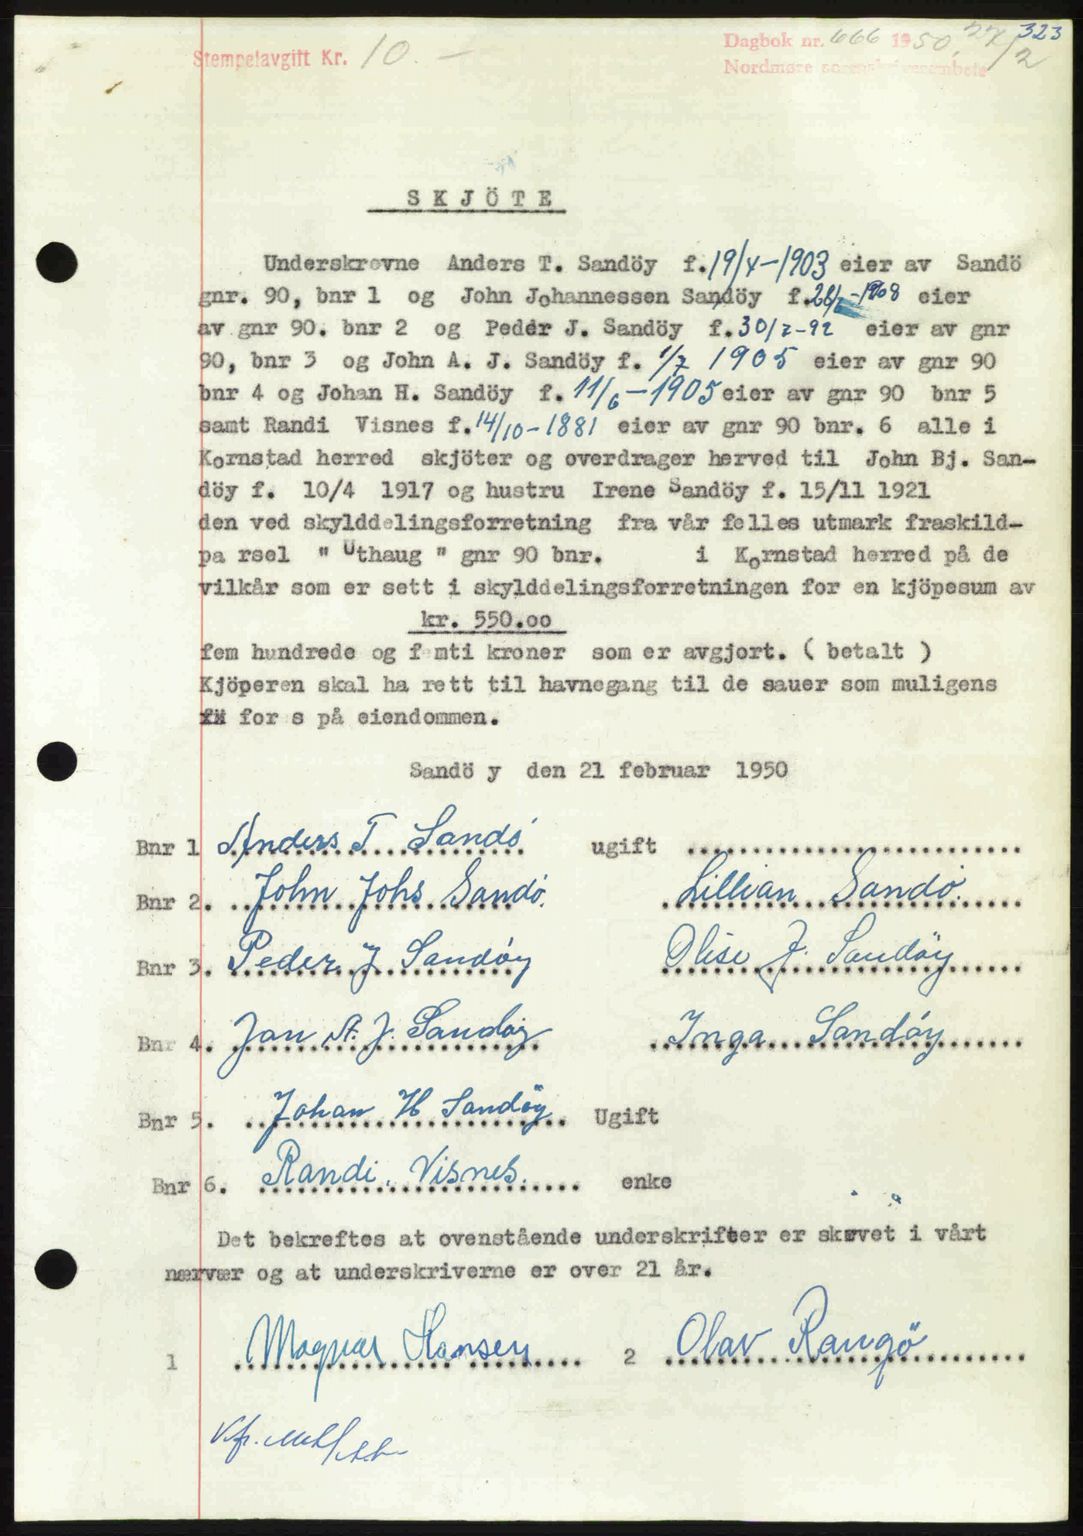 323
Stempelavgift Kr. 10. -
Dagbok nr. 666 1950, 27/2
Nordmøre sorenskriverembete
SKJÖTE
Underskrevne Anders T. Sandöy f. 19/4-1903 eier av Sandö
gnr. 90, bnr 1 og John Johannessen Sandöy f. -1908 eier
av gnr 90. bnr 2 og Peder J. Sandöy f. 30/7-92 eier av gnr
90, bnr 3 og John A. J. Sandöy f. 1/7 1905 eier av gnr 90
bnr 4 og Johan H. Sandöy f. 11/6-1905 eier av gnr 90 bnr 5
samt Randi Visnes f. 14/10-1881 eier av gnr 90 bnr. 6 alle i
Kornstad herred skjöter og overdrager herved til John Bj. San-
döy f. 10/4 1917 og hustru Irene Sandöy f. 15/11 1921
den ved skylddelingsforretning fra vår felles utmark fraskild-
pa rsel " Uthaug " gnr 90 bnr. i Kornstad herred på de
vilkår som er sett i skylddelingsforretningen for en kjöpesum av
kr. 550.oo
fem hundrede og femti kroner som er avgjort. ( betalt )
Kjöperen skal ha rett til havnegang til de sauer som muligens
for s på eiendommen.
Sandö y den 21 februar 1950
Bnr 1 Anders T Sandö ugift
Bnr 2. John Johs Sandö. Lillian Sandö.
Bnr 3. Peder J Sandöy Olise J. Sandöy
Bnr 4. Jon A. J. Sandöy Inga Sandöy
Bnr 5. Johan H Sandöy Ugift
Bnr 6. Randi Visnes. enke
Det bekreftes at ovenstående underskrifter er skrevet i vårt
nærvær og at underskriverne er over 21 år.
1 Magnar Hansen 2 Olav Rangö